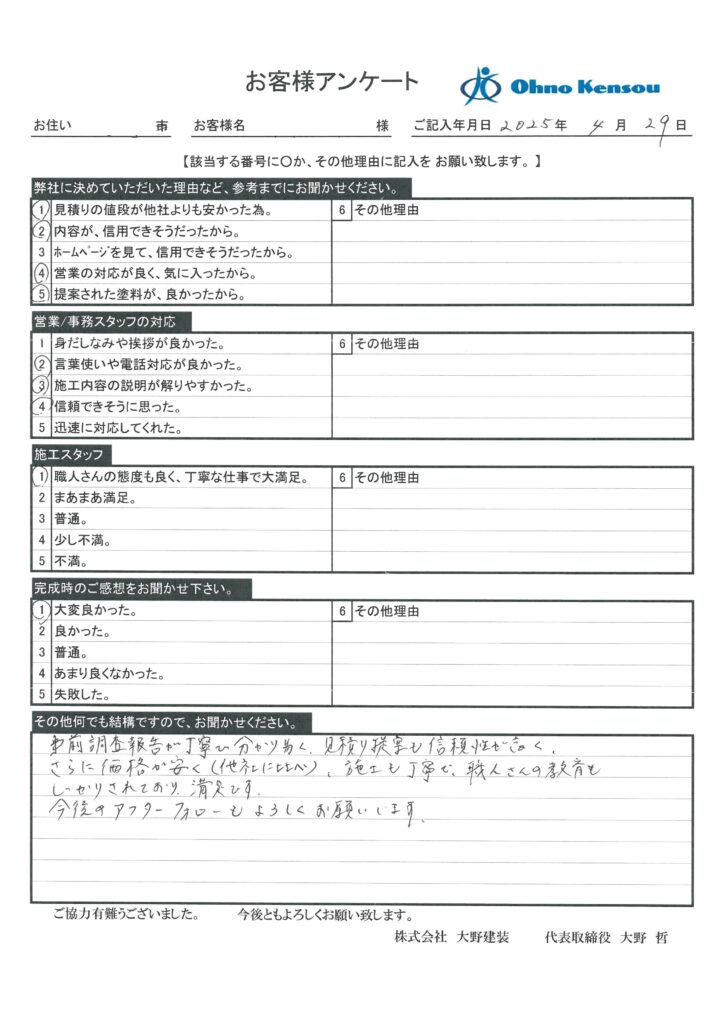 お客様アンケート
Ohno Kensou
お住い 市 お客様名 様 ご記入年月日 2025年 4月 29日
【該当する番号に〇か、その他理由に記入を お願い致します。】
弊社に決めていただいた理由など、参考までにお聞かせください。
1 見積りの値段が他社よりも安かった為。 6 その他理由
2 内容が、信用できそうだったから。
3 ホームページを見て、信用できそうだったから。
4 営業の対応が良く、気に入ったから。
5 提案された塗料が、良かったから。
営業/事務スタッフの対応
1 身だしなみや挨拶が良かった。 6 その他理由
2 言葉使いや電話対応が良かった。
3 施工内容の説明が解りやすかった。
4 信頼できそうに思った。
5 迅速に対応してくれた。
施工スタッフ
1 職人さんの態度も良く、丁寧な仕事で大満足。 6 その他理由
2 まあまあ満足。
3 普通。
4 少し不満。
5 不満。
完成時のご感想をお聞かせ下さい。
1 大変良かった。 6 その他理由
2 良かった。
3 普通。
4 あまり良くなかった。
5 失敗した。
その他何でも結構ですので、お聞かせください。
事前調査報告が丁寧で分かり易く、見積り提案も信頼性が高く、
さらに価格が安く(他社に比べ)、施工も丁寧で、職人さんの教育も
しっかりされており、満足です。
今後のアフターフォローもよろしくお願いします。
ご協力有難うございました。 今後ともよろしくお願い致します。
株式会社 大野建装 代表取締役 大野 哲